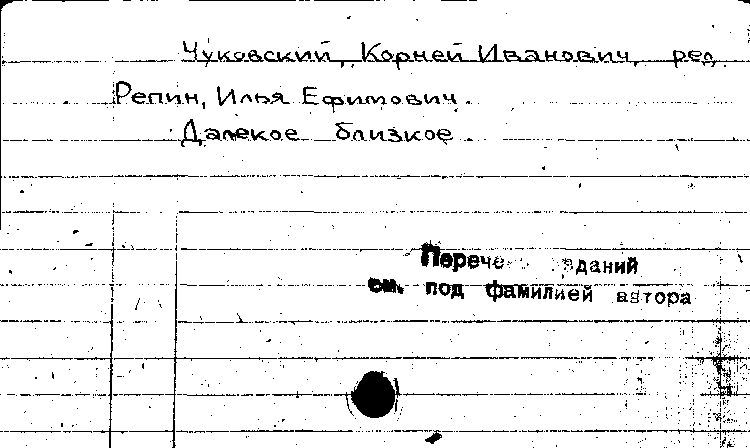 Чуковский, Корней Иванович, ред.
Репин, Илья Ефимович.
Далекое близкое.
см. под фамилией автора